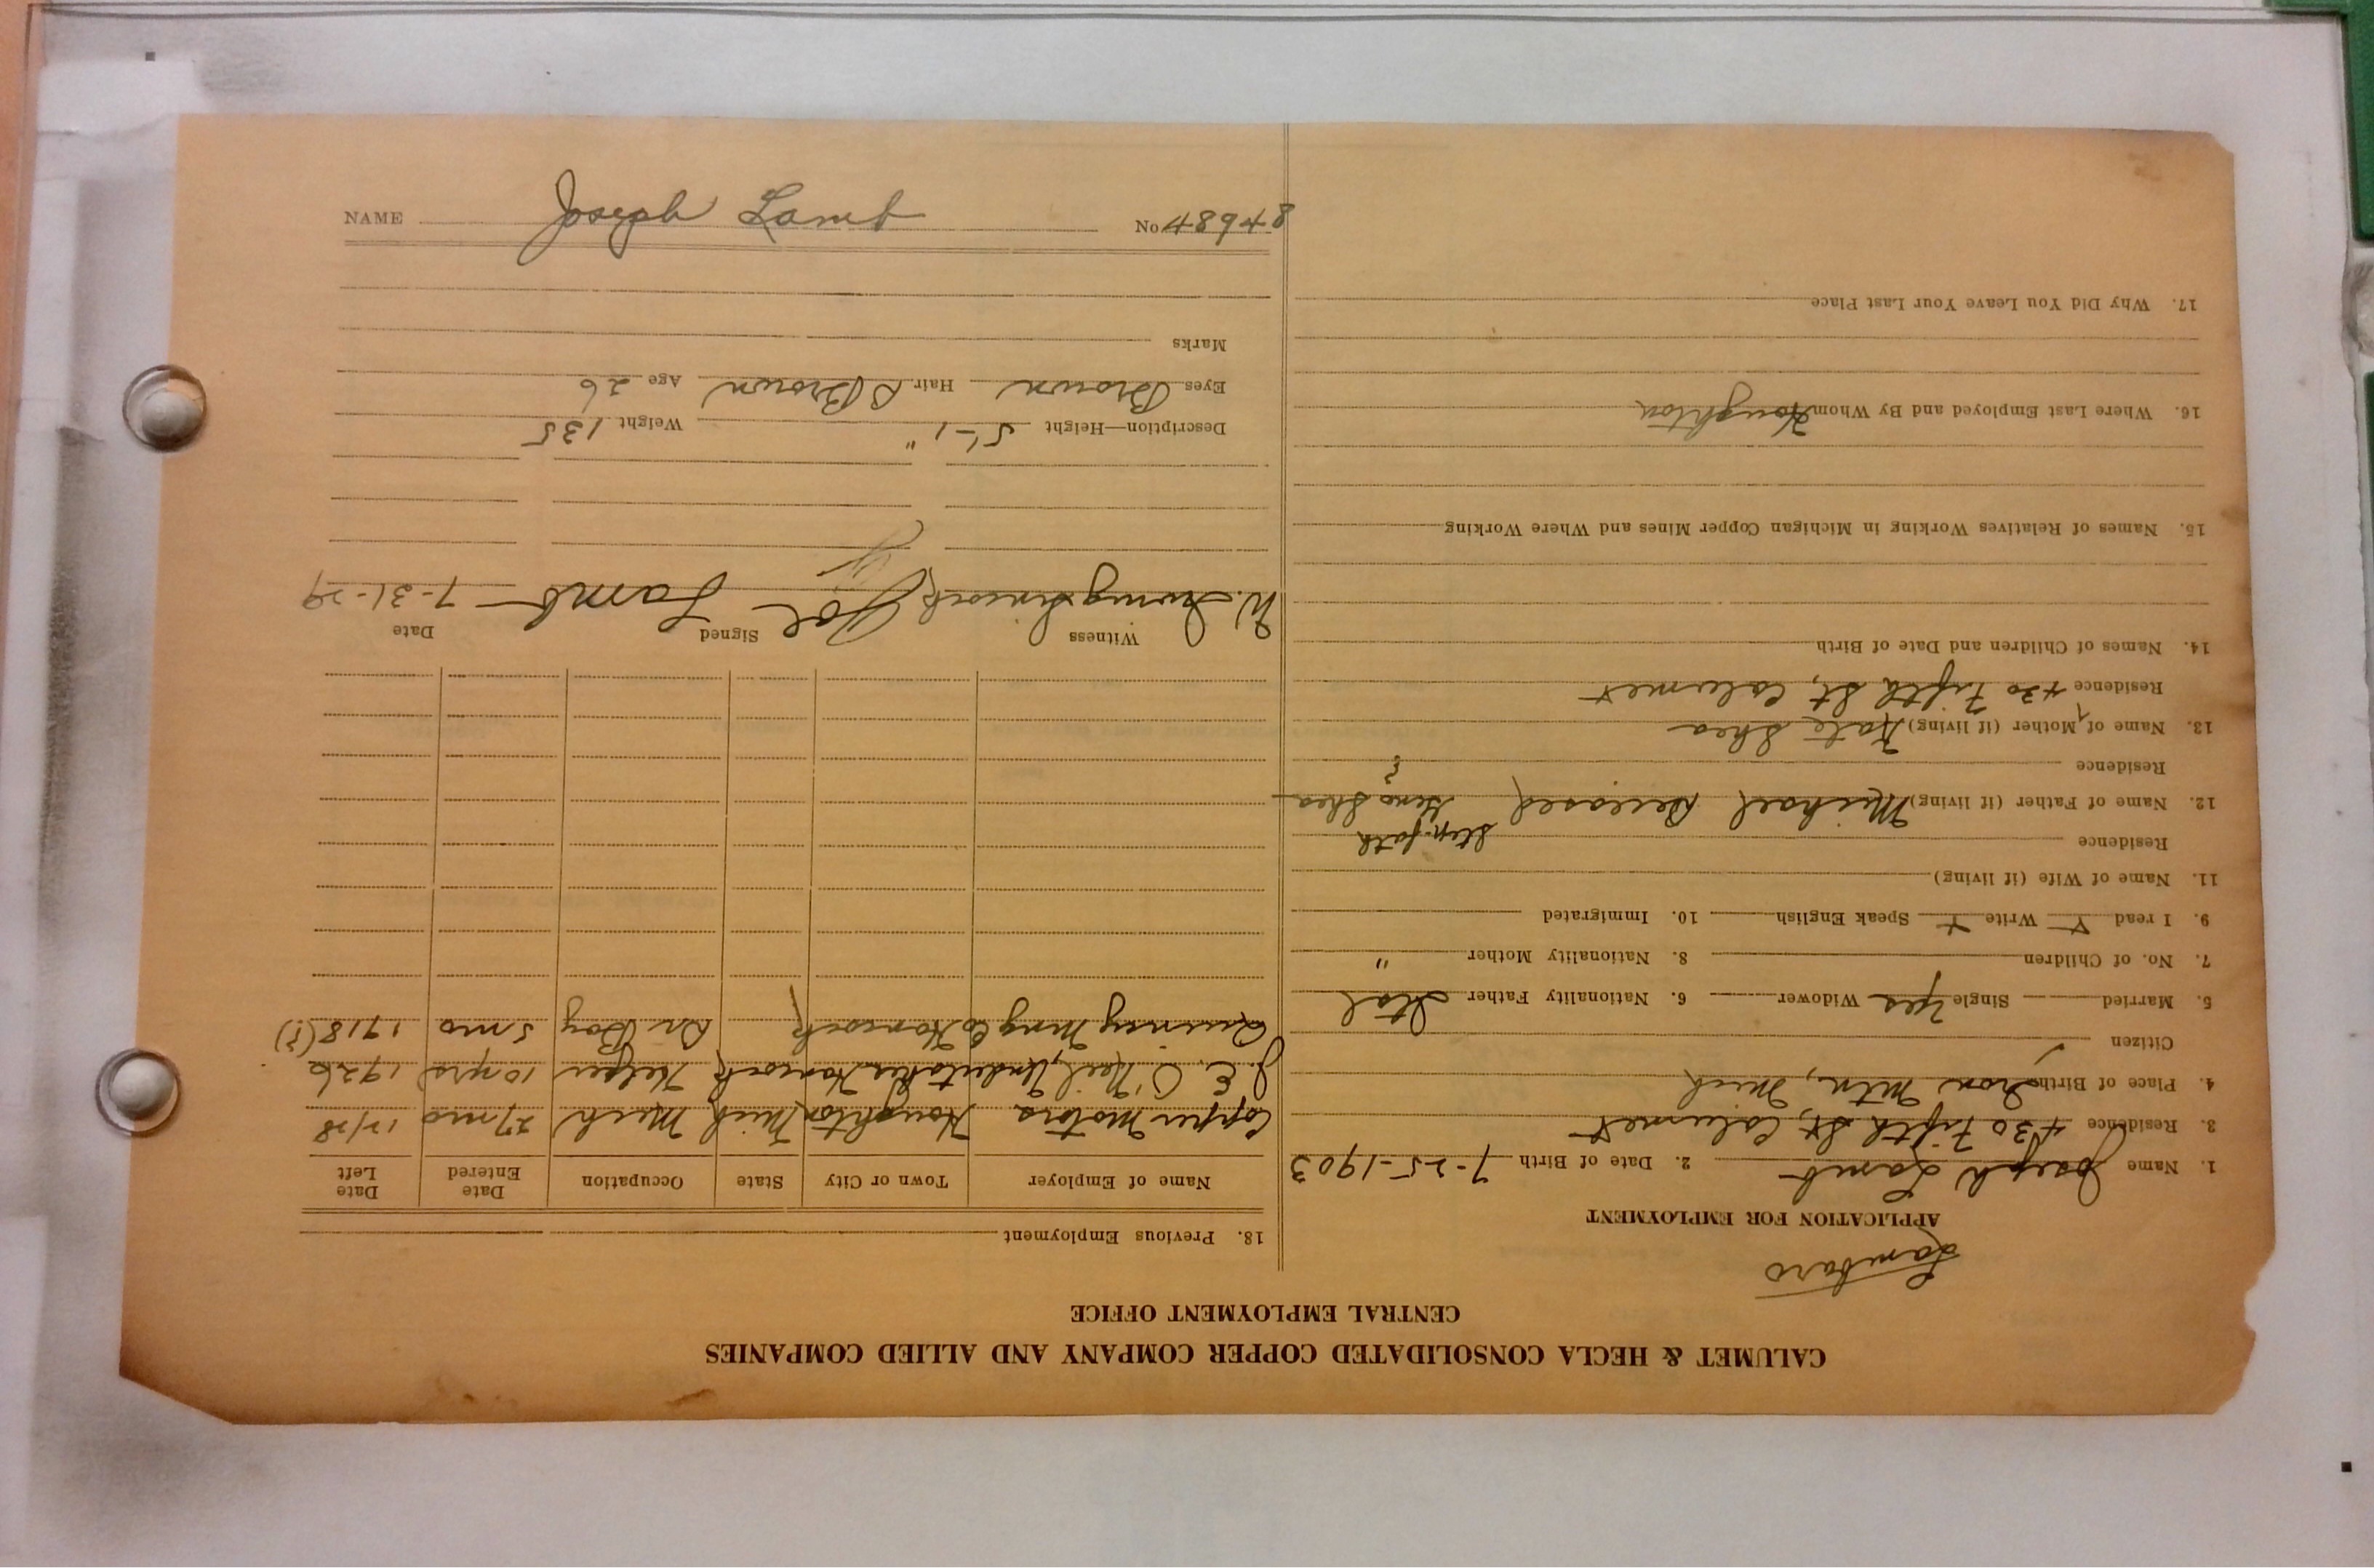 CALUMET & HECLA CONSOLIDATED COPPER COMPANY AND ALLIED COMPANIES
CENTRAL EMPLOYMENT OFFICE
Lambaro
APPLICATION FOR EMPLOYMENT
1. Name Joseph Lamb 2. Date of Birth 7-25-1903
3. Residence 430 Fifth St, Calumet
4. Place of Birth Iron Mtn, Mich
Citizen
5. Married Single Yes Widower 6. Nationality Father Ital
7. No. of Children 8. Nationality Mother "
9. I read Y Write Y Speak English 10. Immigrated
11. Name of Wife (if living)
Residence Step-fath
12. Name of Father (if living) Michael Deceased Geno Shea
Residence
13. Name of Mother (if living) Kate Shea
Residence 430 Fifth St, Calumet
14. Names of Children and Date of Birth
15. Names of Relatives Working in Michigan Copper Mines and Where Working
16. Where Last Employed and By Whom Houghton
17. Why Did You Leave Your Last Place
18. Previous Employment
Name of Employer Town or City State Occupation Date Entered Date Left
Copper Motors Houghton Mich Mech 27 mo 12/28
J. E. O'Neil, Undertaker Hancock Helper 10 yrs 1926
Quincy Mng Co Hancock Dr. Boy 5 mo 1918(?)
Witness Signed Date
W. Joe Lamb 7-31-29
Description—Height 5'-1" Weight 135
Eyes Brown Hair D Brown Age 26
Marks
NAME Joseph Lamb No 48648